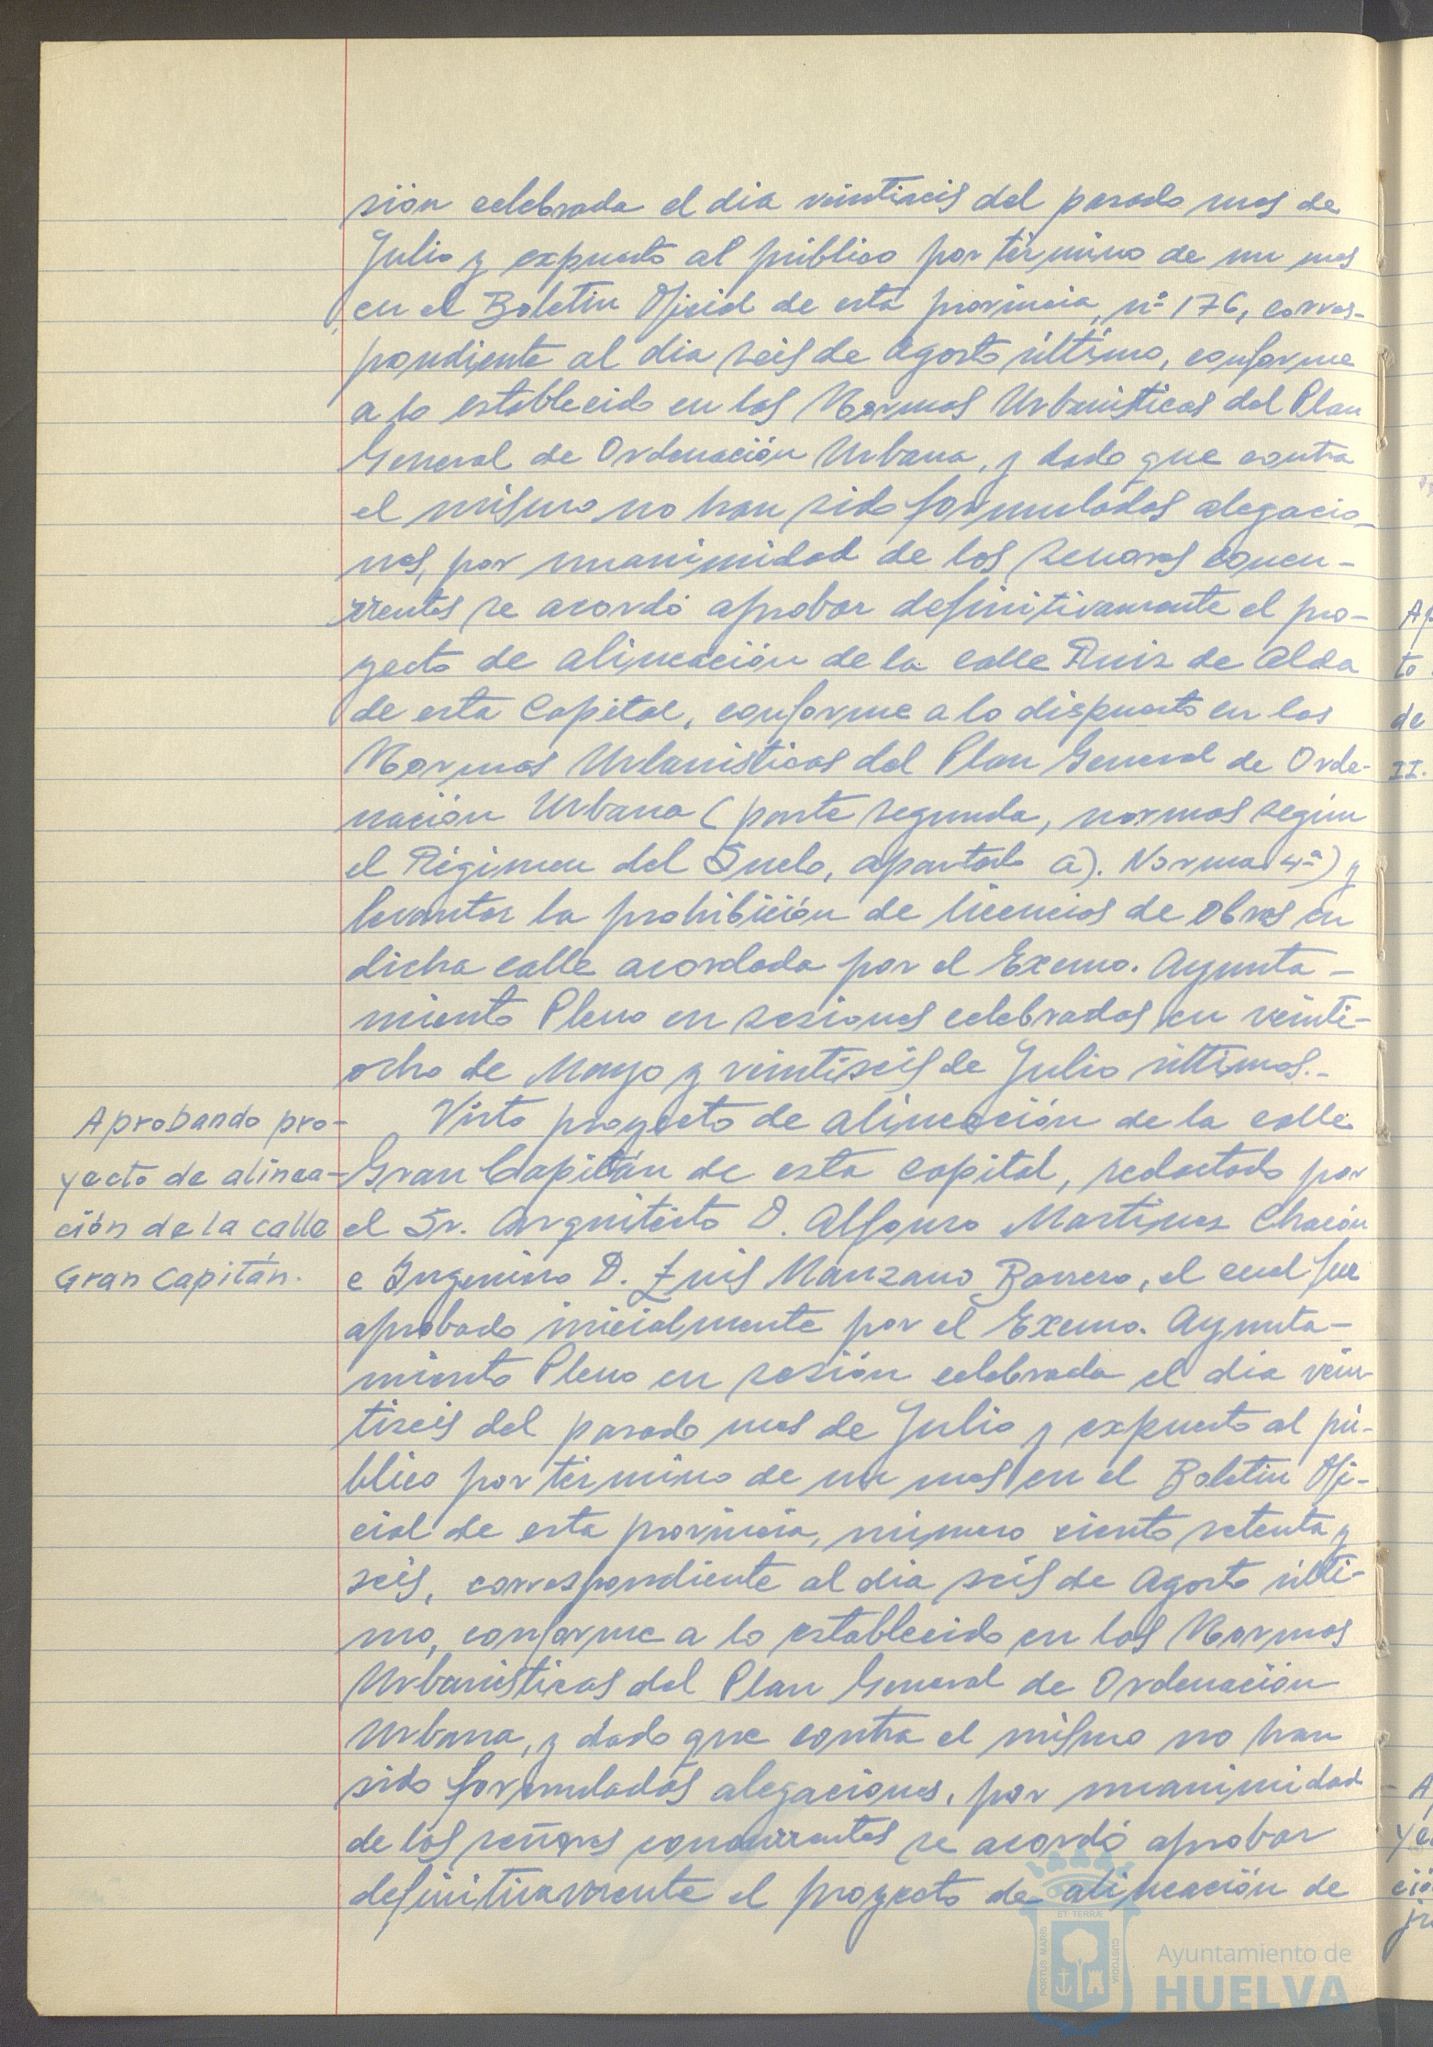 sión celebrada el dia veintiseis del pasado mes de
Julio y expuesto al público por término de un mes
en el Boletin Oficial de esta provincia, nº 176, corres-
pondiente al dia seis de Agosto último, conforme
a lo establecido en las Normas Urbanisticas del Plan
General de Ordenación Urbana, y dado que contra
el mismo no han sido formuladas alegacio-
nes, por unanimidad de los señores concu-
rrentes se acordó aprobar definitivamente el pro-
yecto de alineación de la calle Ruiz de Alda
de esta Capital, conforme a lo dispuesto en las
Normas Urbanisticas del Plan General de Orde-
nación Urbana (parte segunda, normas según
el Régimen del Suelo, apartado a). Norma 4ª) y
levantar la prohibición de licencias de obras en
dicha calle acordada por el Excmo. Ayunta-
miento Pleno en sesiones celebradas en veinti-
ocho de Mayo y veintiseis de Julio últimos.-
Aprobando pro-
yecto de alinea-
ción de la calle
Gran Capitán.
Visto proyecto de alineación de la calle
Gran Capitán de esta capital, redactado por
el Sr. Arquitecto D. Alfonso Martinez Chacón
e Ingeniero D. Luis Manzano Barrero, el cual fue
aprobado inicialmente por el Excmo. Ayunta-
miento Pleno en sesión celebrada el dia vein-
tiseis del pasado mes de Julio y expuesto al pú-
blico por término de un mes en el Boletin Ofi-
cial de esta provincia, número ciento setenta y
seis, correspondiente al dia seis de Agosto últi-
mo, conforme a lo establecido en las Normas
Urbanisticas del Plan General de Ordenación
Urbana, y dado que contra el mismo no han
sido formuladas alegaciones, por unanimidad
de los señores concurrentes se acordó aprobar
definitivamente el proyecto de alineación de
Ap
to
de
II.
A
ye
ció
PORTUS MARIS
ET TERRÆ
CUSTODIA
Ayuntamiento de
HUELVA